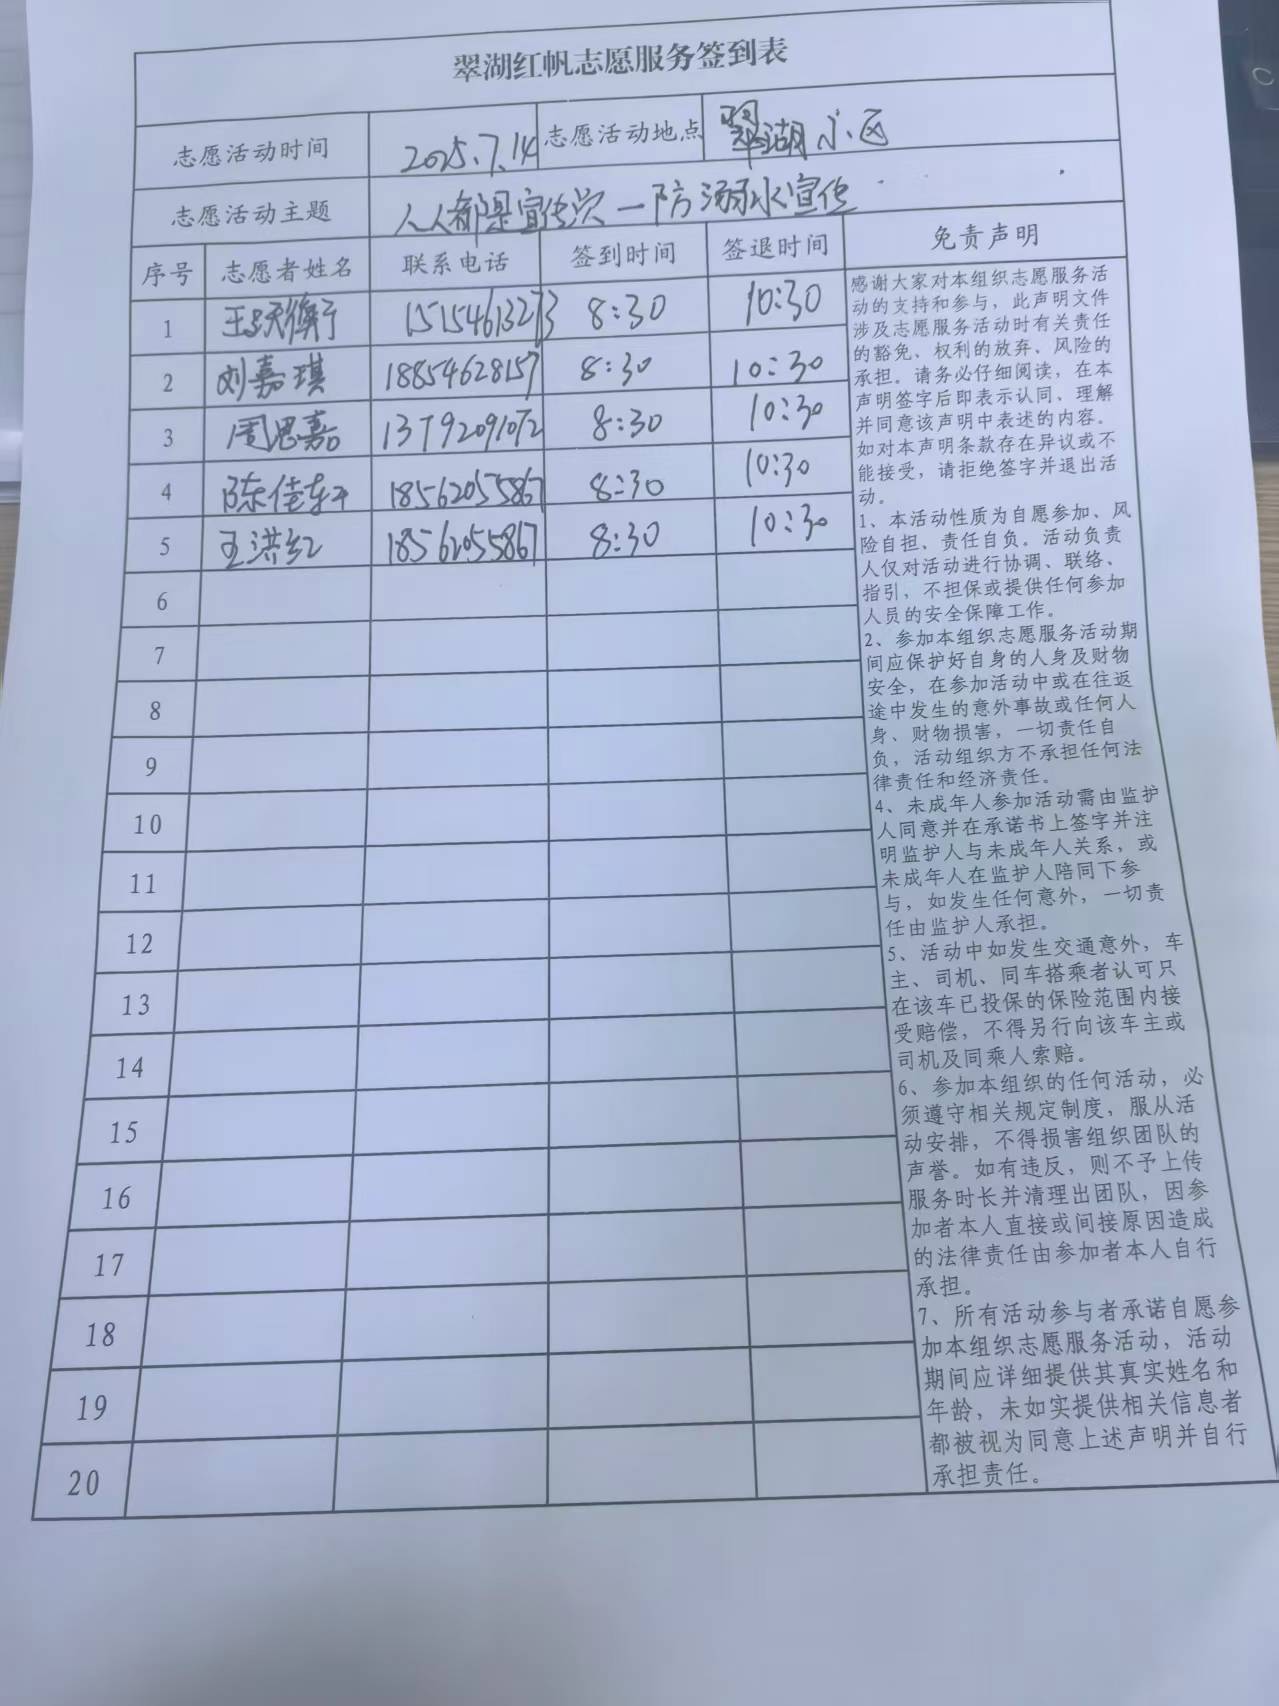 翠湖红帆志愿服务签到表
志愿活动时间 2025.7.14 志愿活动地点 翠湖小区
志愿活动主题 人人都是宣传员—防溺水宣传
序号 志愿者姓名 联系电话 签到时间 签退时间 免责声明
1 15154613273 8:30 10:30
2 刘嘉琪 18854628157 8:30 10:30
3 周思嘉 13792091072 8:30 10:30
4 陈佳轩 18562055867 8:30 10:30
5 王洪红 18562055867 8:30 10:30
6
7
8
9
10
11
12
13
14
15
16
17
18
19
20
感谢大家对本组织志愿服务活
动的支持和参与，此声明文件
涉及志愿服务活动时有关责任
的豁免、权利的放弃、风险的
承担。请务必仔细阅读，在本
声明签字后即表示认同、理解
并同意该声明中表述的内容。
如对本声明条款存在异议或不
能接受，请拒绝签字并退出活
动。
1、本活动性质为自愿参加、风
险自担、责任自负。活动负责
人仅对活动进行协调、联络、
指引，不担保或提供任何参加
人员的安全保障工作。
2、参加本组织志愿服务活动期
间应保护好自身的人身及财物
安全，在参加活动中或在往返
途中发生的意外事故或任何人
身、财物损害，一切责任自
负，活动组织方不承担任何法
律责任和经济责任。
4、未成年人参加活动需由监护
人同意并在承诺书上签字并注
明监护人与未成年人关系，或
未成年人在监护人陪同下参
与，如发生任何意外，一切责
任由监护人承担。
5、活动中如发生交通意外，车
主、司机、同车搭乘者认可只
在该车已投保的保险范围内接
受赔偿，不得另行向该车主或
司机及同乘人索赔。
6、参加本组织的任何活动，必
须遵守相关规定制度，服从活
动安排，不得损害组织团队的
声誉。如有违反，则不予上传
服务时长并清理出团队，因参
加者本人直接或间接原因造成
的法律责任由参加者本人自行
承担。
7、所有活动参与者承诺自愿参
加本组织志愿服务活动，活动
期间应详细提供其真实姓名和
年龄，未如实提供相关信息者
都被视为同意上述声明并自行
承担责任。